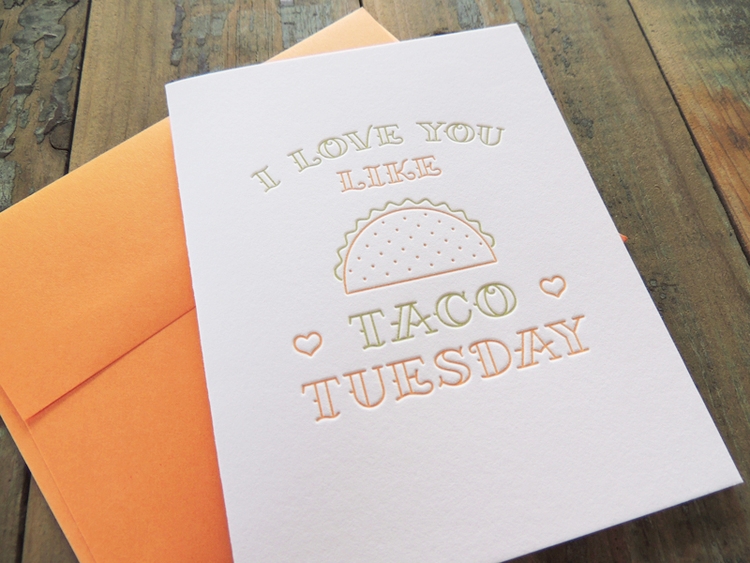 I LOVE YOU
LIKE
TACO
TUESDAY